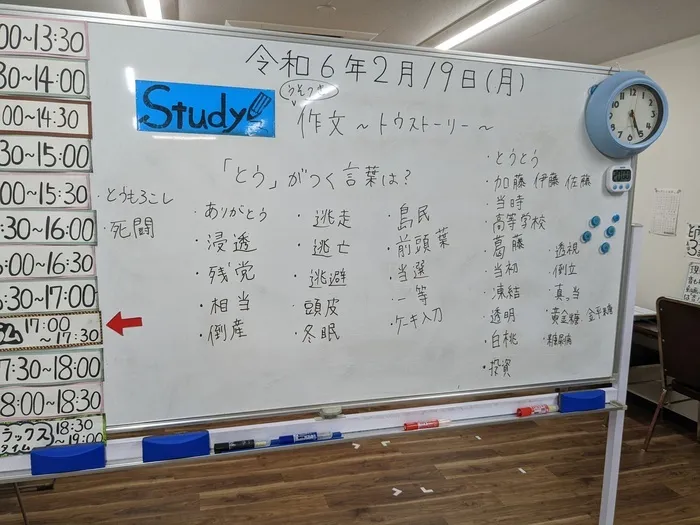 令和6年2月19日(月)
Study
作文～トウストーリー～
「とう」がつく言葉は？
・とうもろこし
・死闘
・ありがとう
・浸透
・残党
・相当
・倒産
・逃走
・逃亡
・逃避
・頭皮
・冬眠
・島民
・前頭葉
・当選
・一等
・ケーキ入刀
・とうとう
・加藤 伊藤 佐藤
・当時
・高等学校
・葛藤
・当初
・凍結
・透明
・白桃
・投資
・透視
・倒立
・真っ当
・黄金糖 金平糖
・糖尿病
00~13:30
30~14:00
00~14:30
30~15:00
00~15:30
:30~16:00
:00~16:30
:30~17:00
17:00
~17:30
7:30~18:00
8:00~18:30
ラックス
タイム
18:30
~19:00